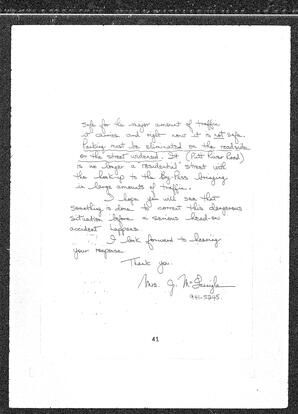 safe for the major amount of traffic
it carries and right now it is not safe.
Parking must be eliminated on the roadside
or the street widened. It (Pitt River Road)
is no longer a residential street with
the hook-up to the By-Pass bringing
in large amounts of traffic.
I hope you will see that
something is done to correct this dangerous
situation before a serious head-on
accident happens.
I look forward to hearing
your response.
Thank you.
Mrs. J.
941-5295.
41